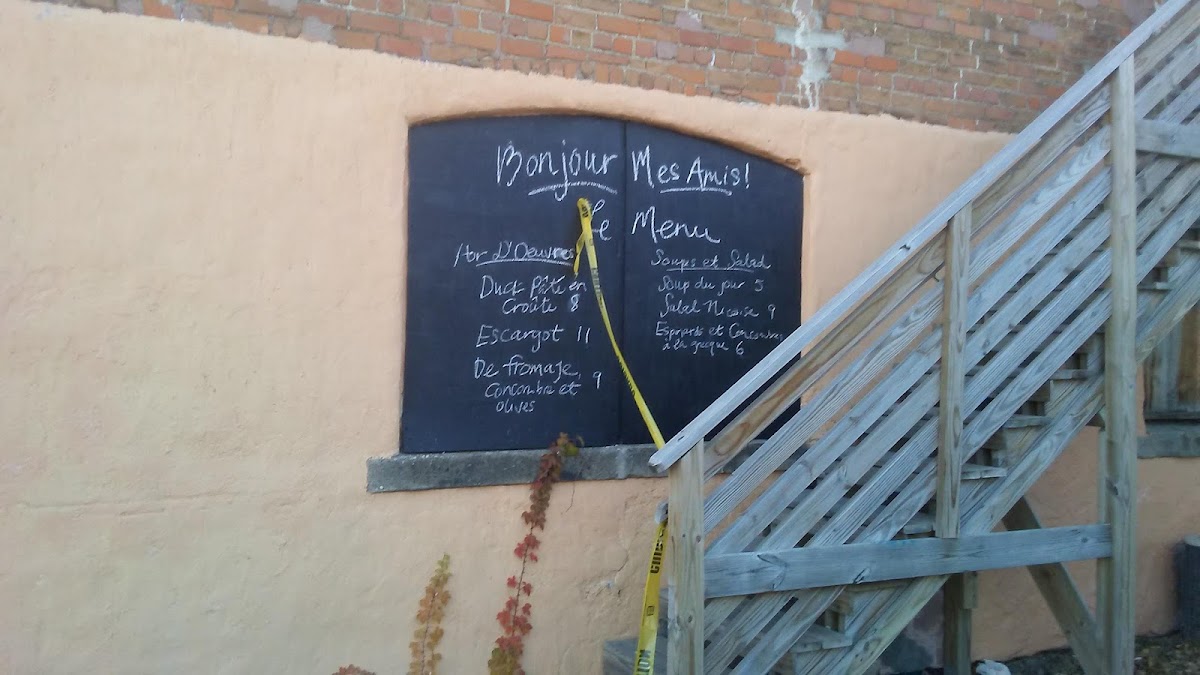 Bonjour Mes Amis!
Le Menu
Hor D'Oeuvres
Duck Pâté en
Croûte 8
Escargot 11
De fromaje,
Concombre et 9
olives
Soups et Salad
Soup du jour 5
Salad Nicoise 9
et Concombres
a la grecque 6